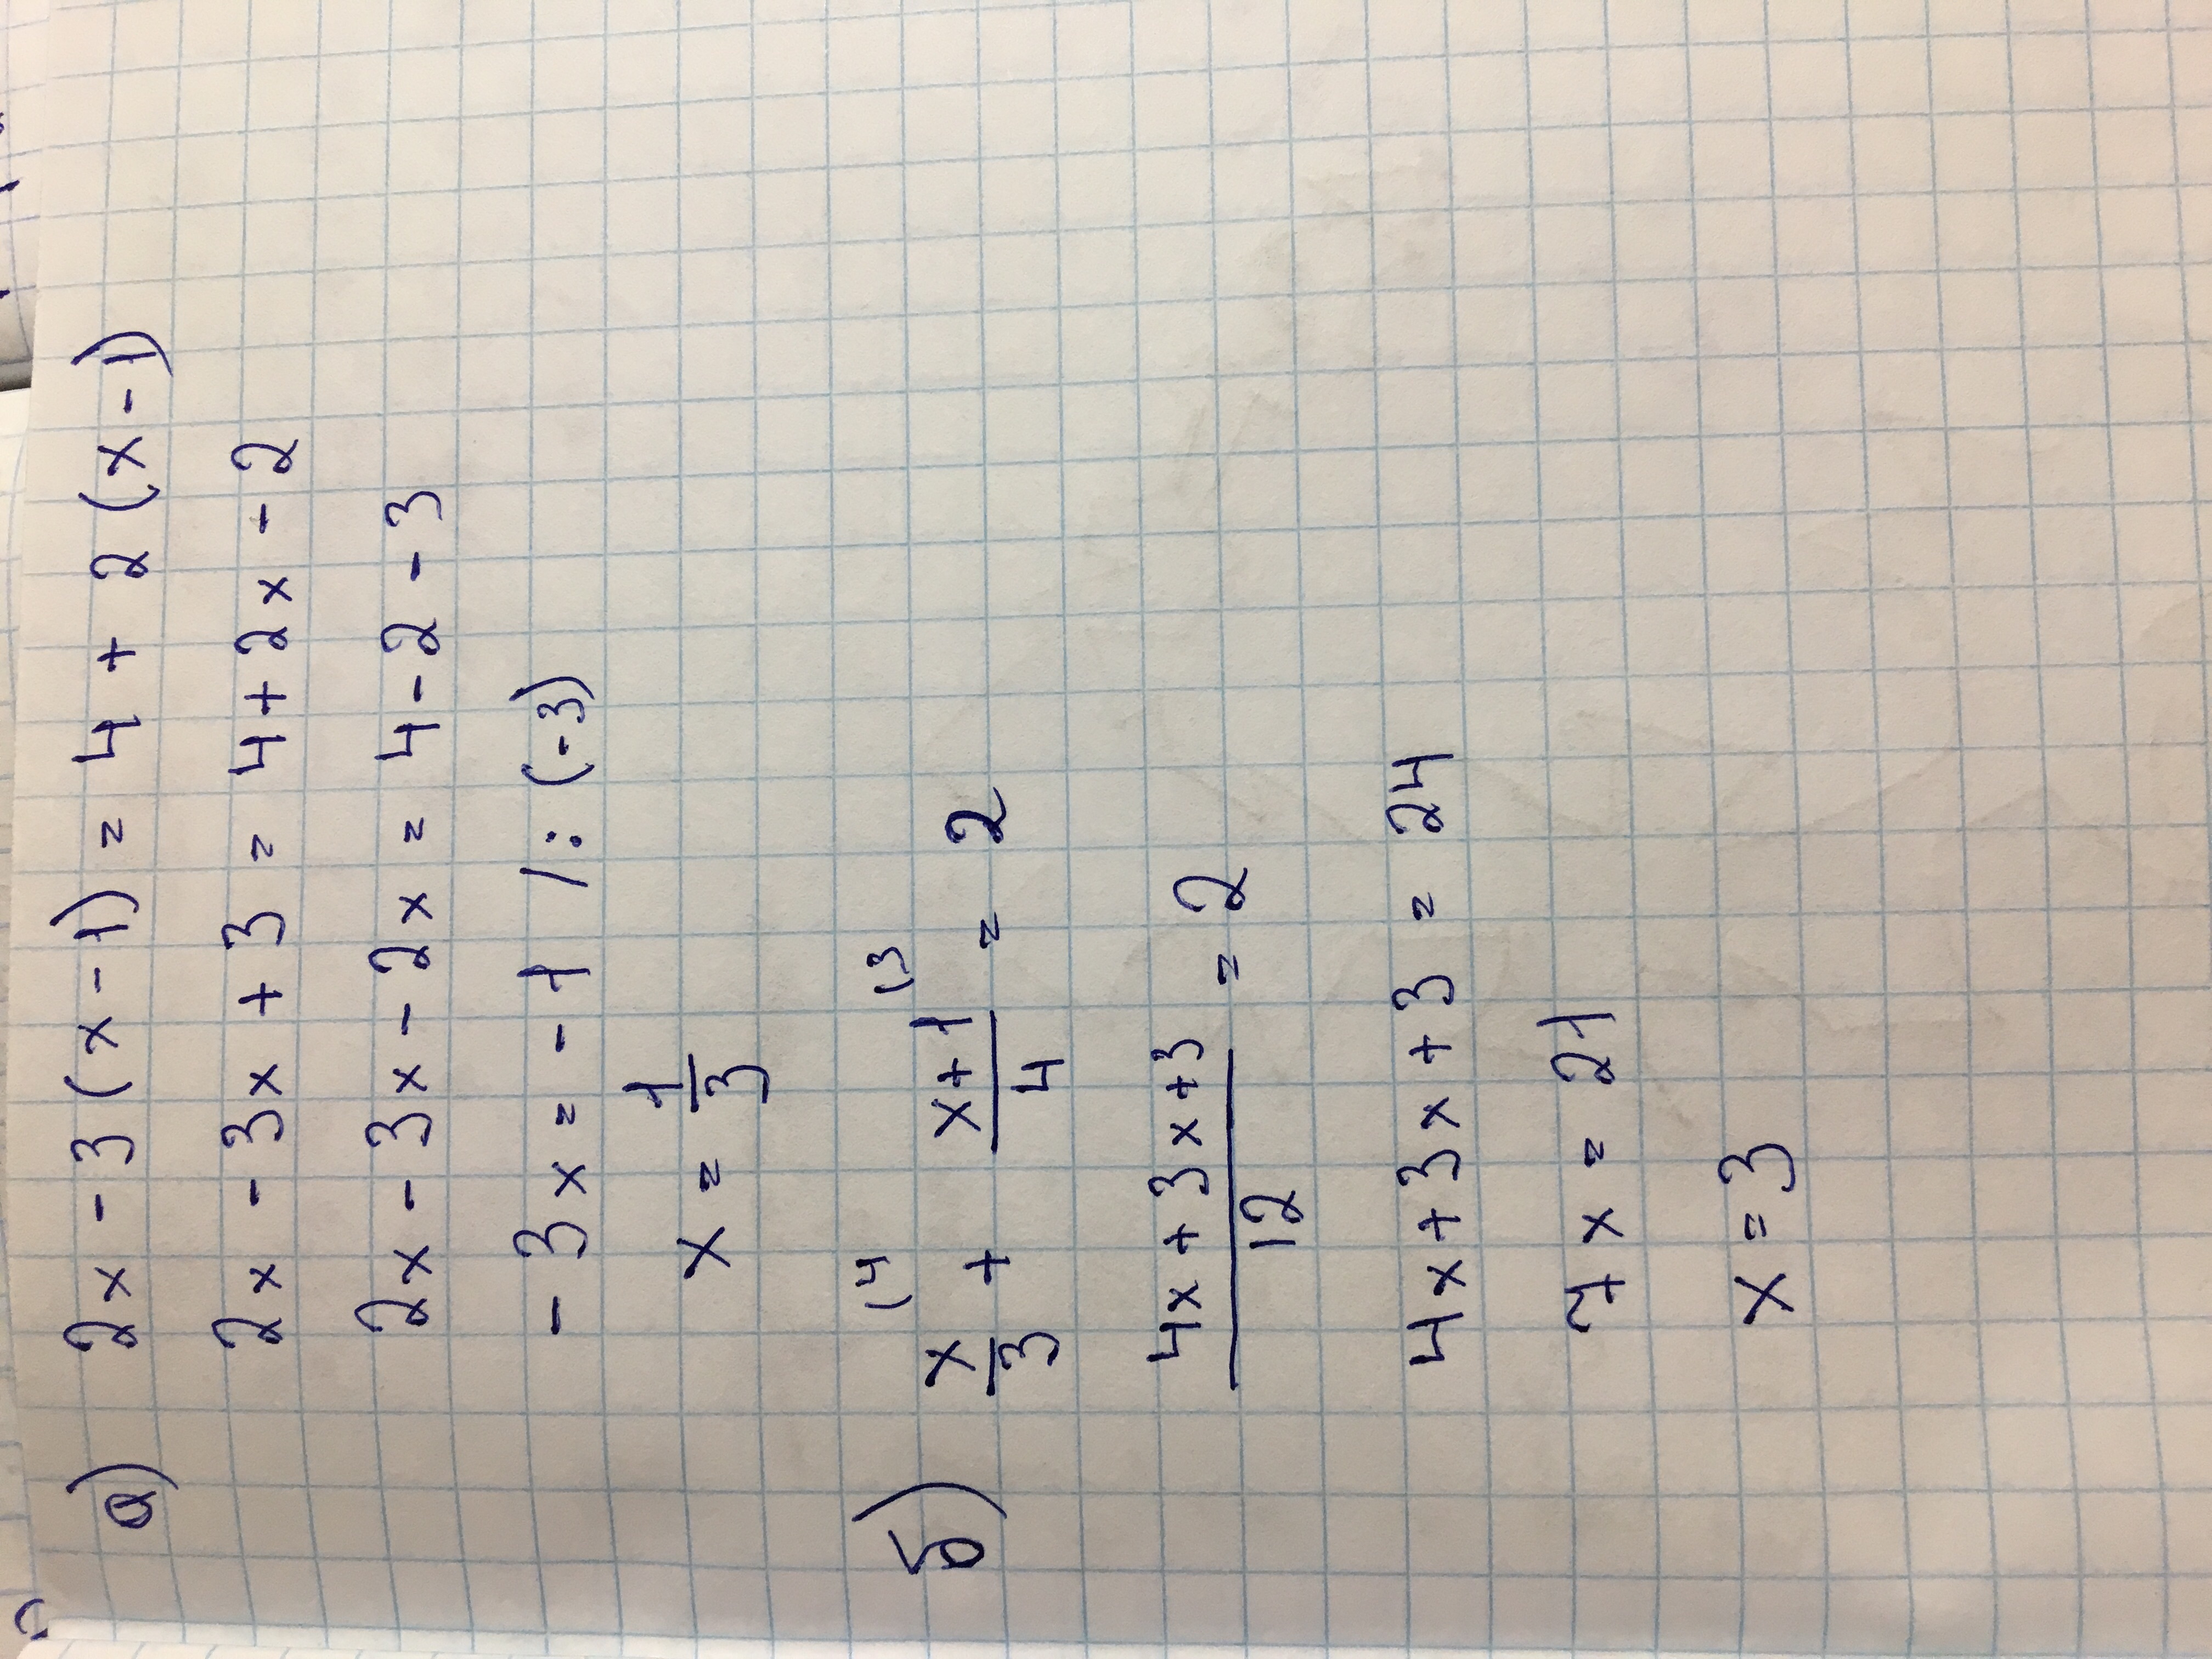 а) 2x - 3(x - 1) = 4 + 2(x - 1)
2x - 3x + 3 = 4 + 2x - 2
2x - 3x - 2x = 4 - 2 - 3
- 3x = - 1 /: (-3)
x = 1/3
б) x/3 (4 + x+1/4 (3 = 2
4x + 3x + 3/12 = 2
4x + 3x + 3 = 24
7x = 21
x = 3